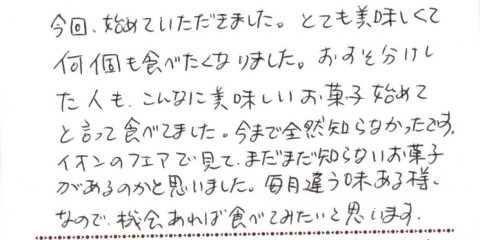 今回、始めていただきました。とても美味しくて
何個も食べたくなりました。おすそ分けし
た人も、こんなに美味しいお菓子始めて
と言って食べてました。今まで全然知らなかったです。
イオンのフェアで見て、まだまだ知らないお菓子
があるのかと思いました。毎月違う味ある様、
なので、機会あれば食べてみたいと思います。